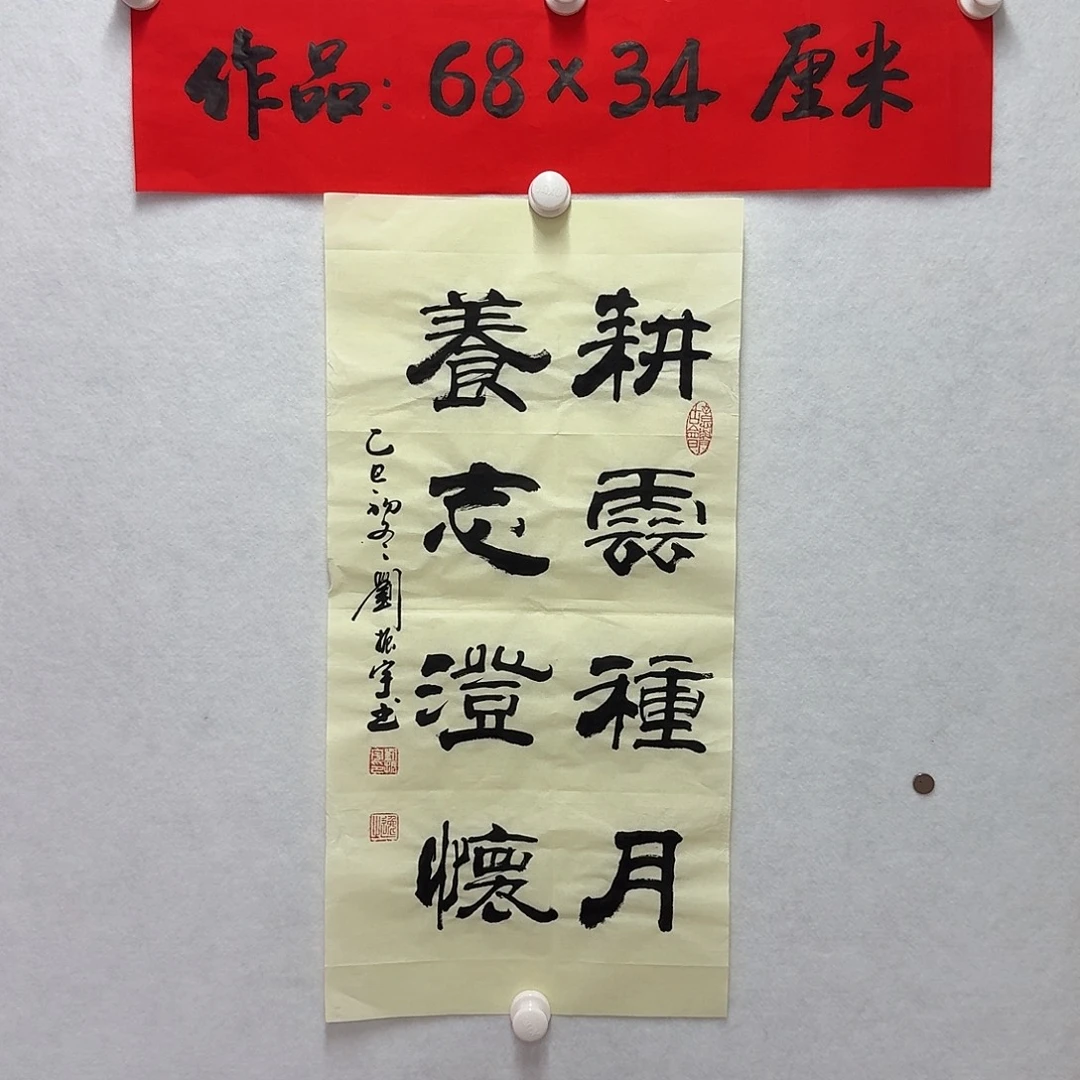 作品：68×34 厘米
耕雲種月
養志澄懷
乙巳初冬劉振宇书